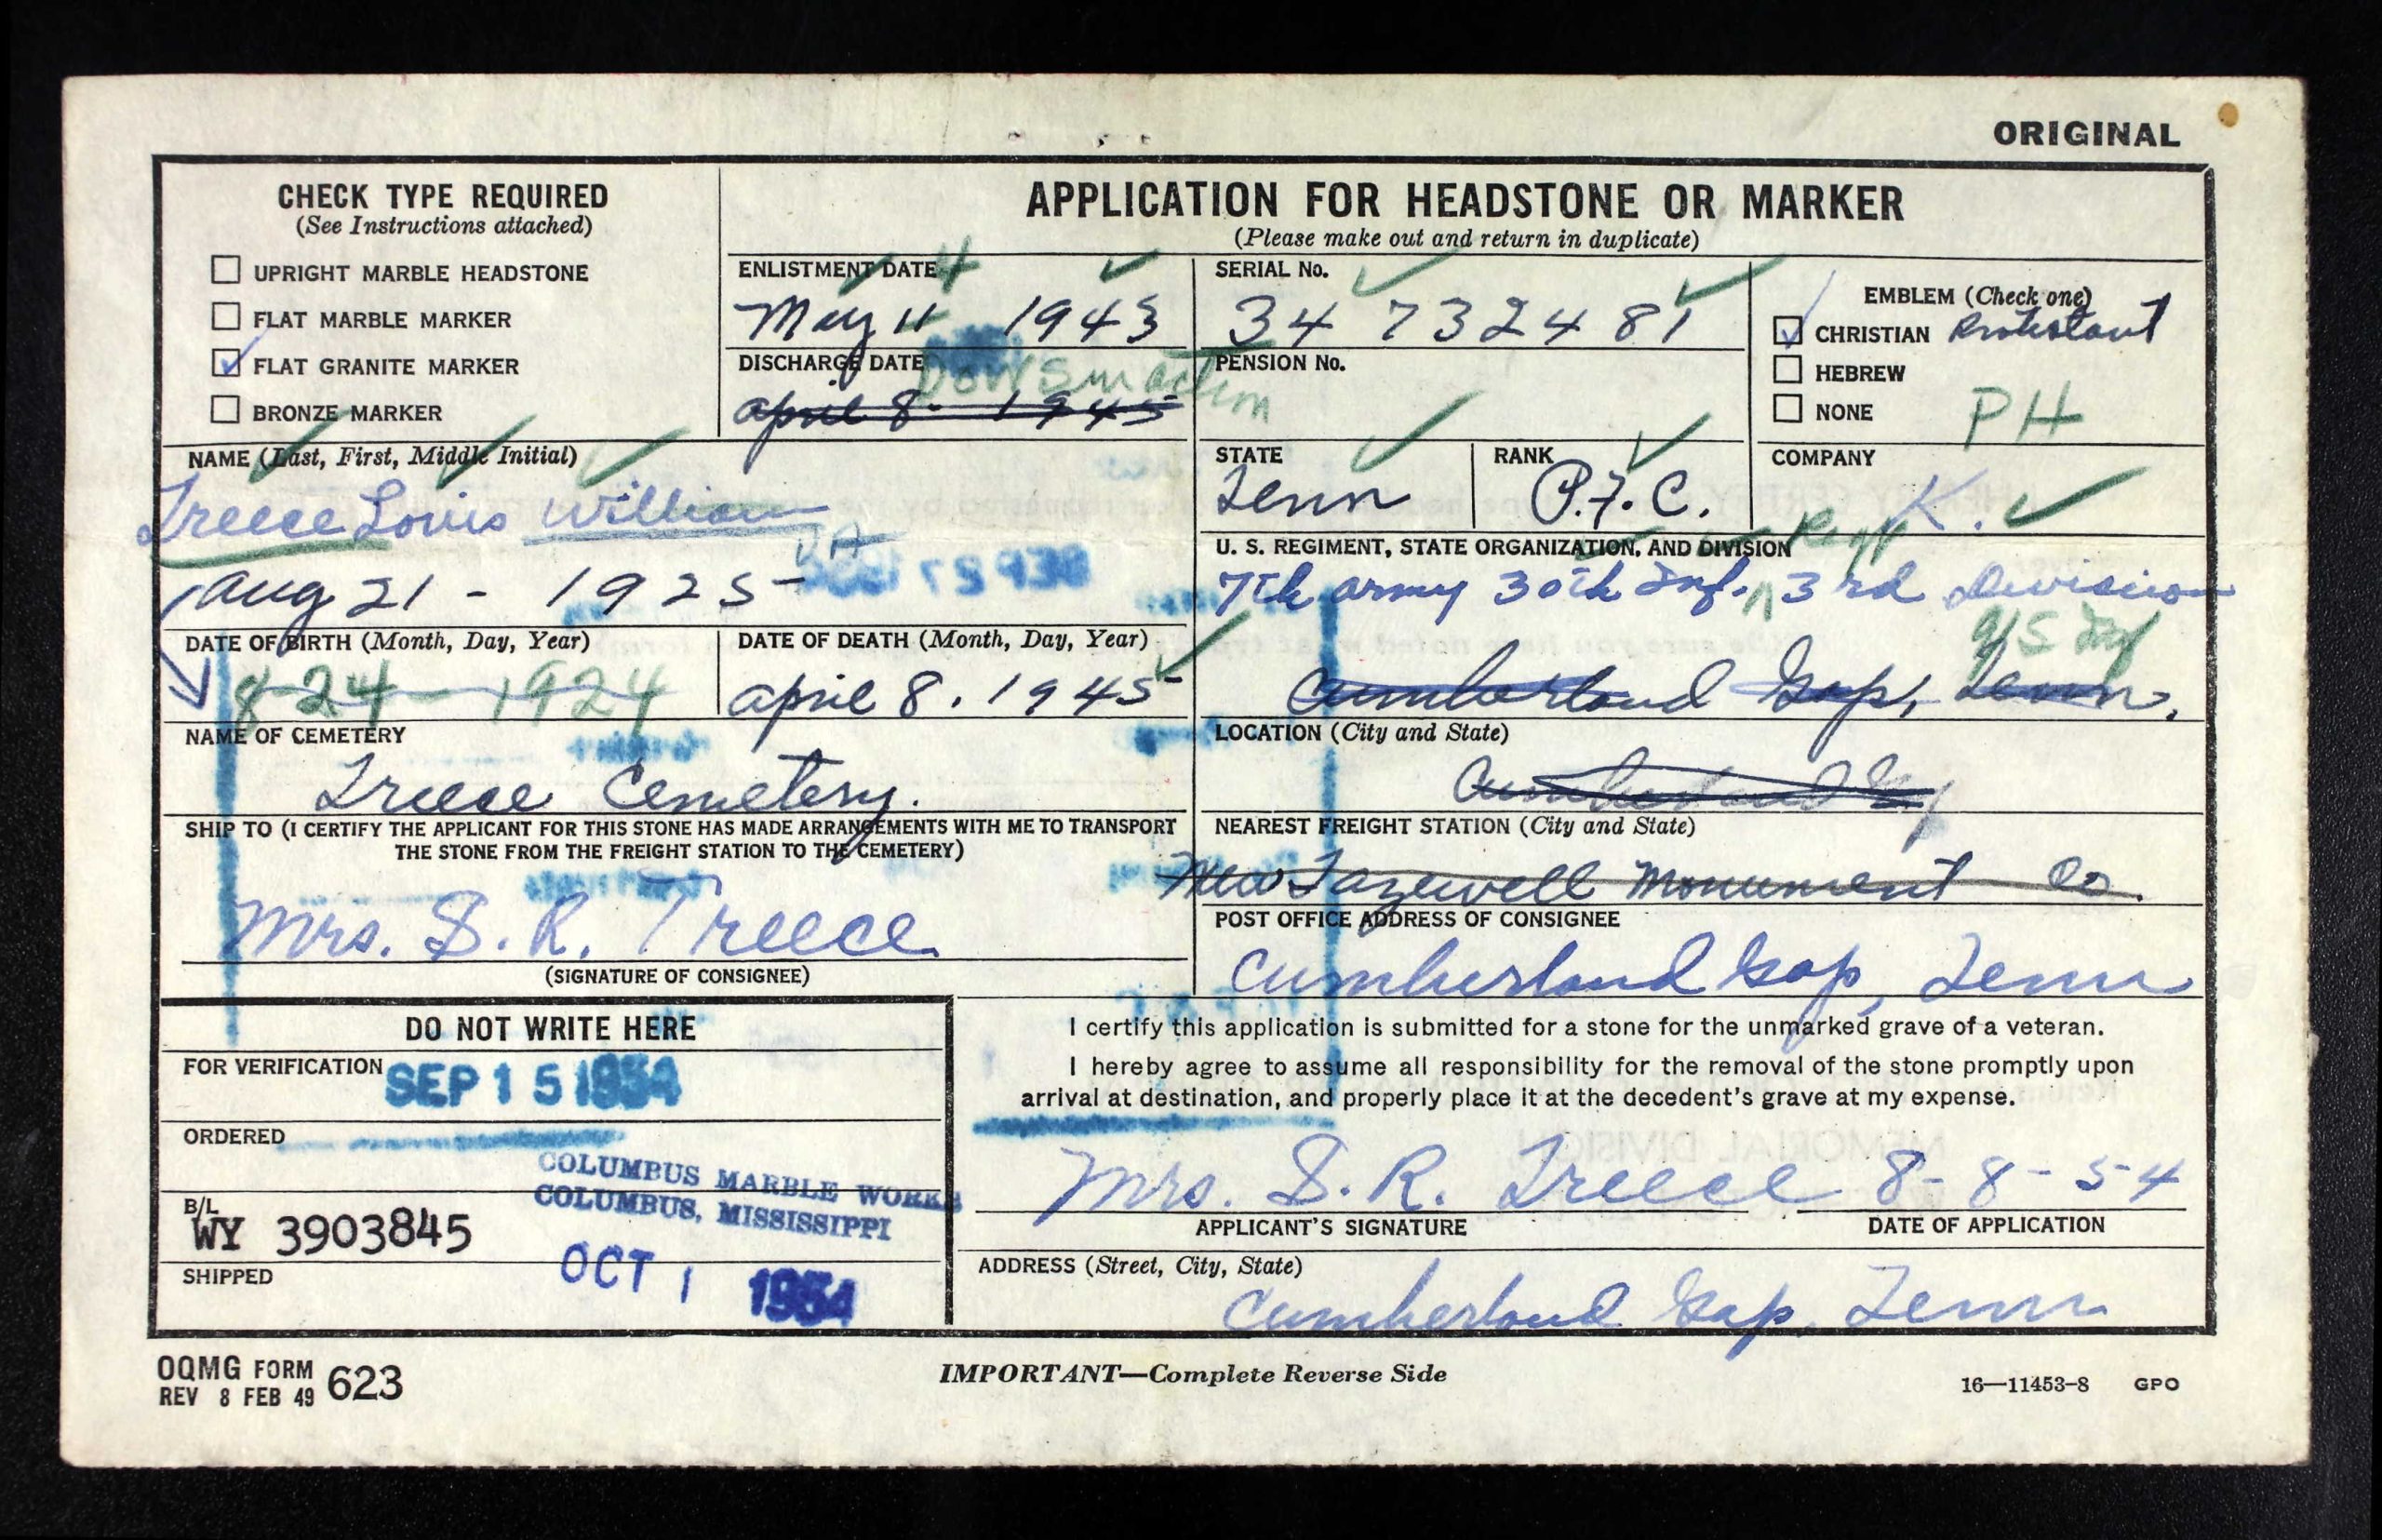 ORIGINAL
CHECK TYPE REQUIRED
(See Instructions attached)
UPRIGHT MARBLE HEADSTONE
FLAT MARBLE MARKER
FLAT GRANITE MARKER
BRONZE MARKER
APPLICATION FOR HEADSTONE OR MARKER
(Please make out and return in duplicate)
ENLISTMENT DATE
4
May 11 1943
SERIAL No.
34 732481
EMBLEM (Check one)
CHRISTIAN Protestant
HEBREW
NONE
PH
DISCHARGE DATE
DOWS
april 8- 1945
PENSION No.
NAME (Last, First, Middle Initial)
Treece Louis William
STATE
Tenn
RANK
P.F.C.
COMPANY
K.
U. S. REGIMENT, STATE ORGANIZATION, AND DIVISION
7th army 30th Inf. 3rd Division
aug 21 - 1925
DATE OF BIRTH (Month, Day, Year)
8-24-1924
DATE OF DEATH (Month, Day, Year)
april 8. 1945
Cumberland Gap, Tenn.
NAME OF CEMETERY
Treece Cemetery.
LOCATION (City and State)
Cumberland Gap
SHIP TO (I CERTIFY THE APPLICANT FOR THIS STONE HAS MADE ARRANGEMENTS WITH ME TO TRANSPORT
THE STONE FROM THE FREIGHT STATION TO THE CEMETERY)
NEAREST FREIGHT STATION (City and State)
New Tazewell Monument Co.
Mrs. S. R. Treece
(SIGNATURE OF CONSIGNEE)
POST OFFICE ADDRESS OF CONSIGNEE
Cumberland Gap, Tenn
DO NOT WRITE HERE
FOR VERIFICATION
SEP 15 1954
ORDERED
COLUMBUS MARBLE WORKS
COLUMBUS, MISSISSIPPI
B/L
WY 3903845
SHIPPED
OCT 1 1954
I certify this application is submitted for a stone for the unmarked grave of a veteran.
I hereby agree to assume all responsibility for the removal of the stone promptly upon
arrival at destination, and properly place it at the decedent's grave at my expense.
Mrs. S. R. Treece 8-8-54
APPLICANT'S SIGNATURE
DATE OF APPLICATION
ADDRESS (Street, City, State)
Cumberland Gap, Tenn
OQMG FORM 623
REV 8 FEB 49
IMPORTANT—Complete Reverse Side
16—11453-8 GPO